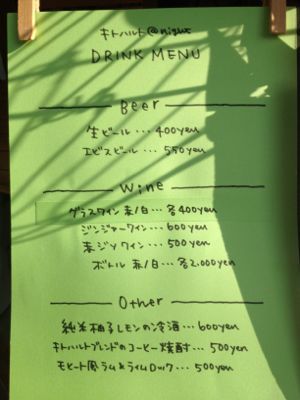 キトハルト@night
DRINK MENU
Beer
生ビール・・・400yen
ヱビスビール・・・550yen
Wine
グラスワイン 赤/白・・・各400yen
ジンジャーワイン・・・600yen
赤ジソワイン・・・500yen
ボトル 赤/白・・・各2,000yen
Other
純米柚子レモンの冷酒・・・600yen
キトハルトブレンドのコーヒー焼酎・・・500yen
モヒート風ラム&ライムロック・・・500yen